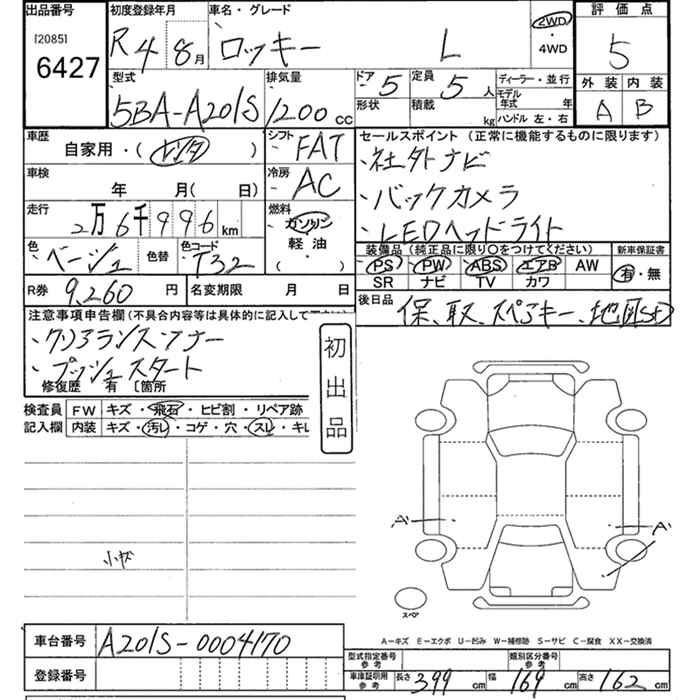 出品番号 初度登録年月 車名・グレード 評価点
[2085] 6427 R4 8月 ロッキー L 2WD・4WD 5
型式 排気量 ドア 5 定員 5人 ディーラー・並行 外装 内装
5BA-A201S 1200cc 形状 積載 kg モデル年式 年 ハンドル 左・右 A B
車歴 自家用・(レンタ) シフト FAT セールスポイント (正常に機能するものに限ります)
車検 年 月(日) 冷房 AC ・社外ナビ
・バックカメラ
走行 2万6千996km 燃料 ガソリン 軽油 ( ) ・LEDヘッドライト
色 ベージュ 色替 色コード T32 装備品 (純正品に限り○をつけてください) 新車保証書
PS PW ABS エアB AW 有・無
SR ナビ TV カワ
R券 9,260円 名変期限 月 日 後日品 保、取、スペアキー、地図SD
注意事項申告欄(不具合内容等は具体的に記入して下
・クリアランスソナー
・プッシュスタート
修復歴 有 〔箇所
初出品
検査員 FW キズ・飛石・ヒビ割・リペア跡
記入欄 内装 キズ・汚レ・コゲ・穴・スレ・キレ
A' A'
小キズ
スペア
A-キズ E-エクボ U-凹み W-補修跡 S-サビ C-腐食 XX-交換済
車台番号 A201S-0004170 型式指定番号 参考 類別区分番号 参考
登録番号 車庫証明用 参考 長さ 399 cm 幅 169 cm 高さ 162 cm